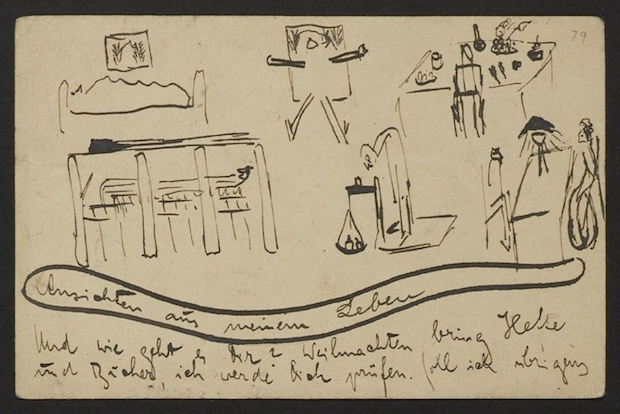 79
Ansichten aus meinem Leben
Und wie geht es Dir? Weihnachten bring Hefte
und Bücher, ich werde Dich prüfen. Soll ich übrigens